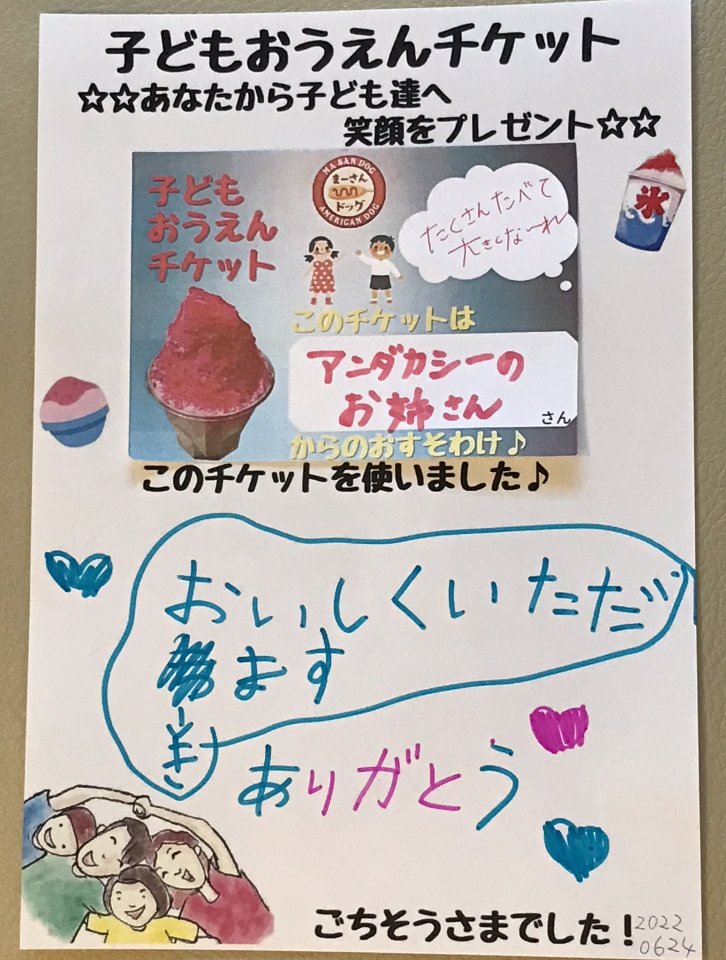 子どもおうえんチケット
☆☆あなたから子ども達へ
笑顔をプレゼント☆☆
子ども
おうえん
チケット
MA SAN DOG
まーさん
ドッグ
AMERICAN DOG
たくさんたべて
大きくな〜れ
氷
このチケットは
アンダカシーの
お姉さん
さん
からのおすそわけ♪
このチケットを使いました♪
おいしくいただ
きます
ありがとう
ごちそうさまでした！
2022
0624